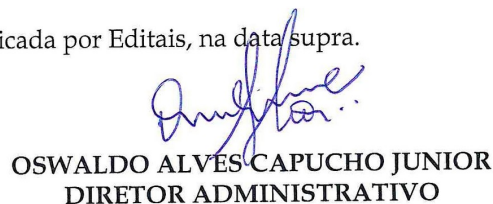 icada por Editais, na data supra.
OSWALDO ALVES CAPUCHO JUNIOR
DIRETOR ADMINISTRATIVO